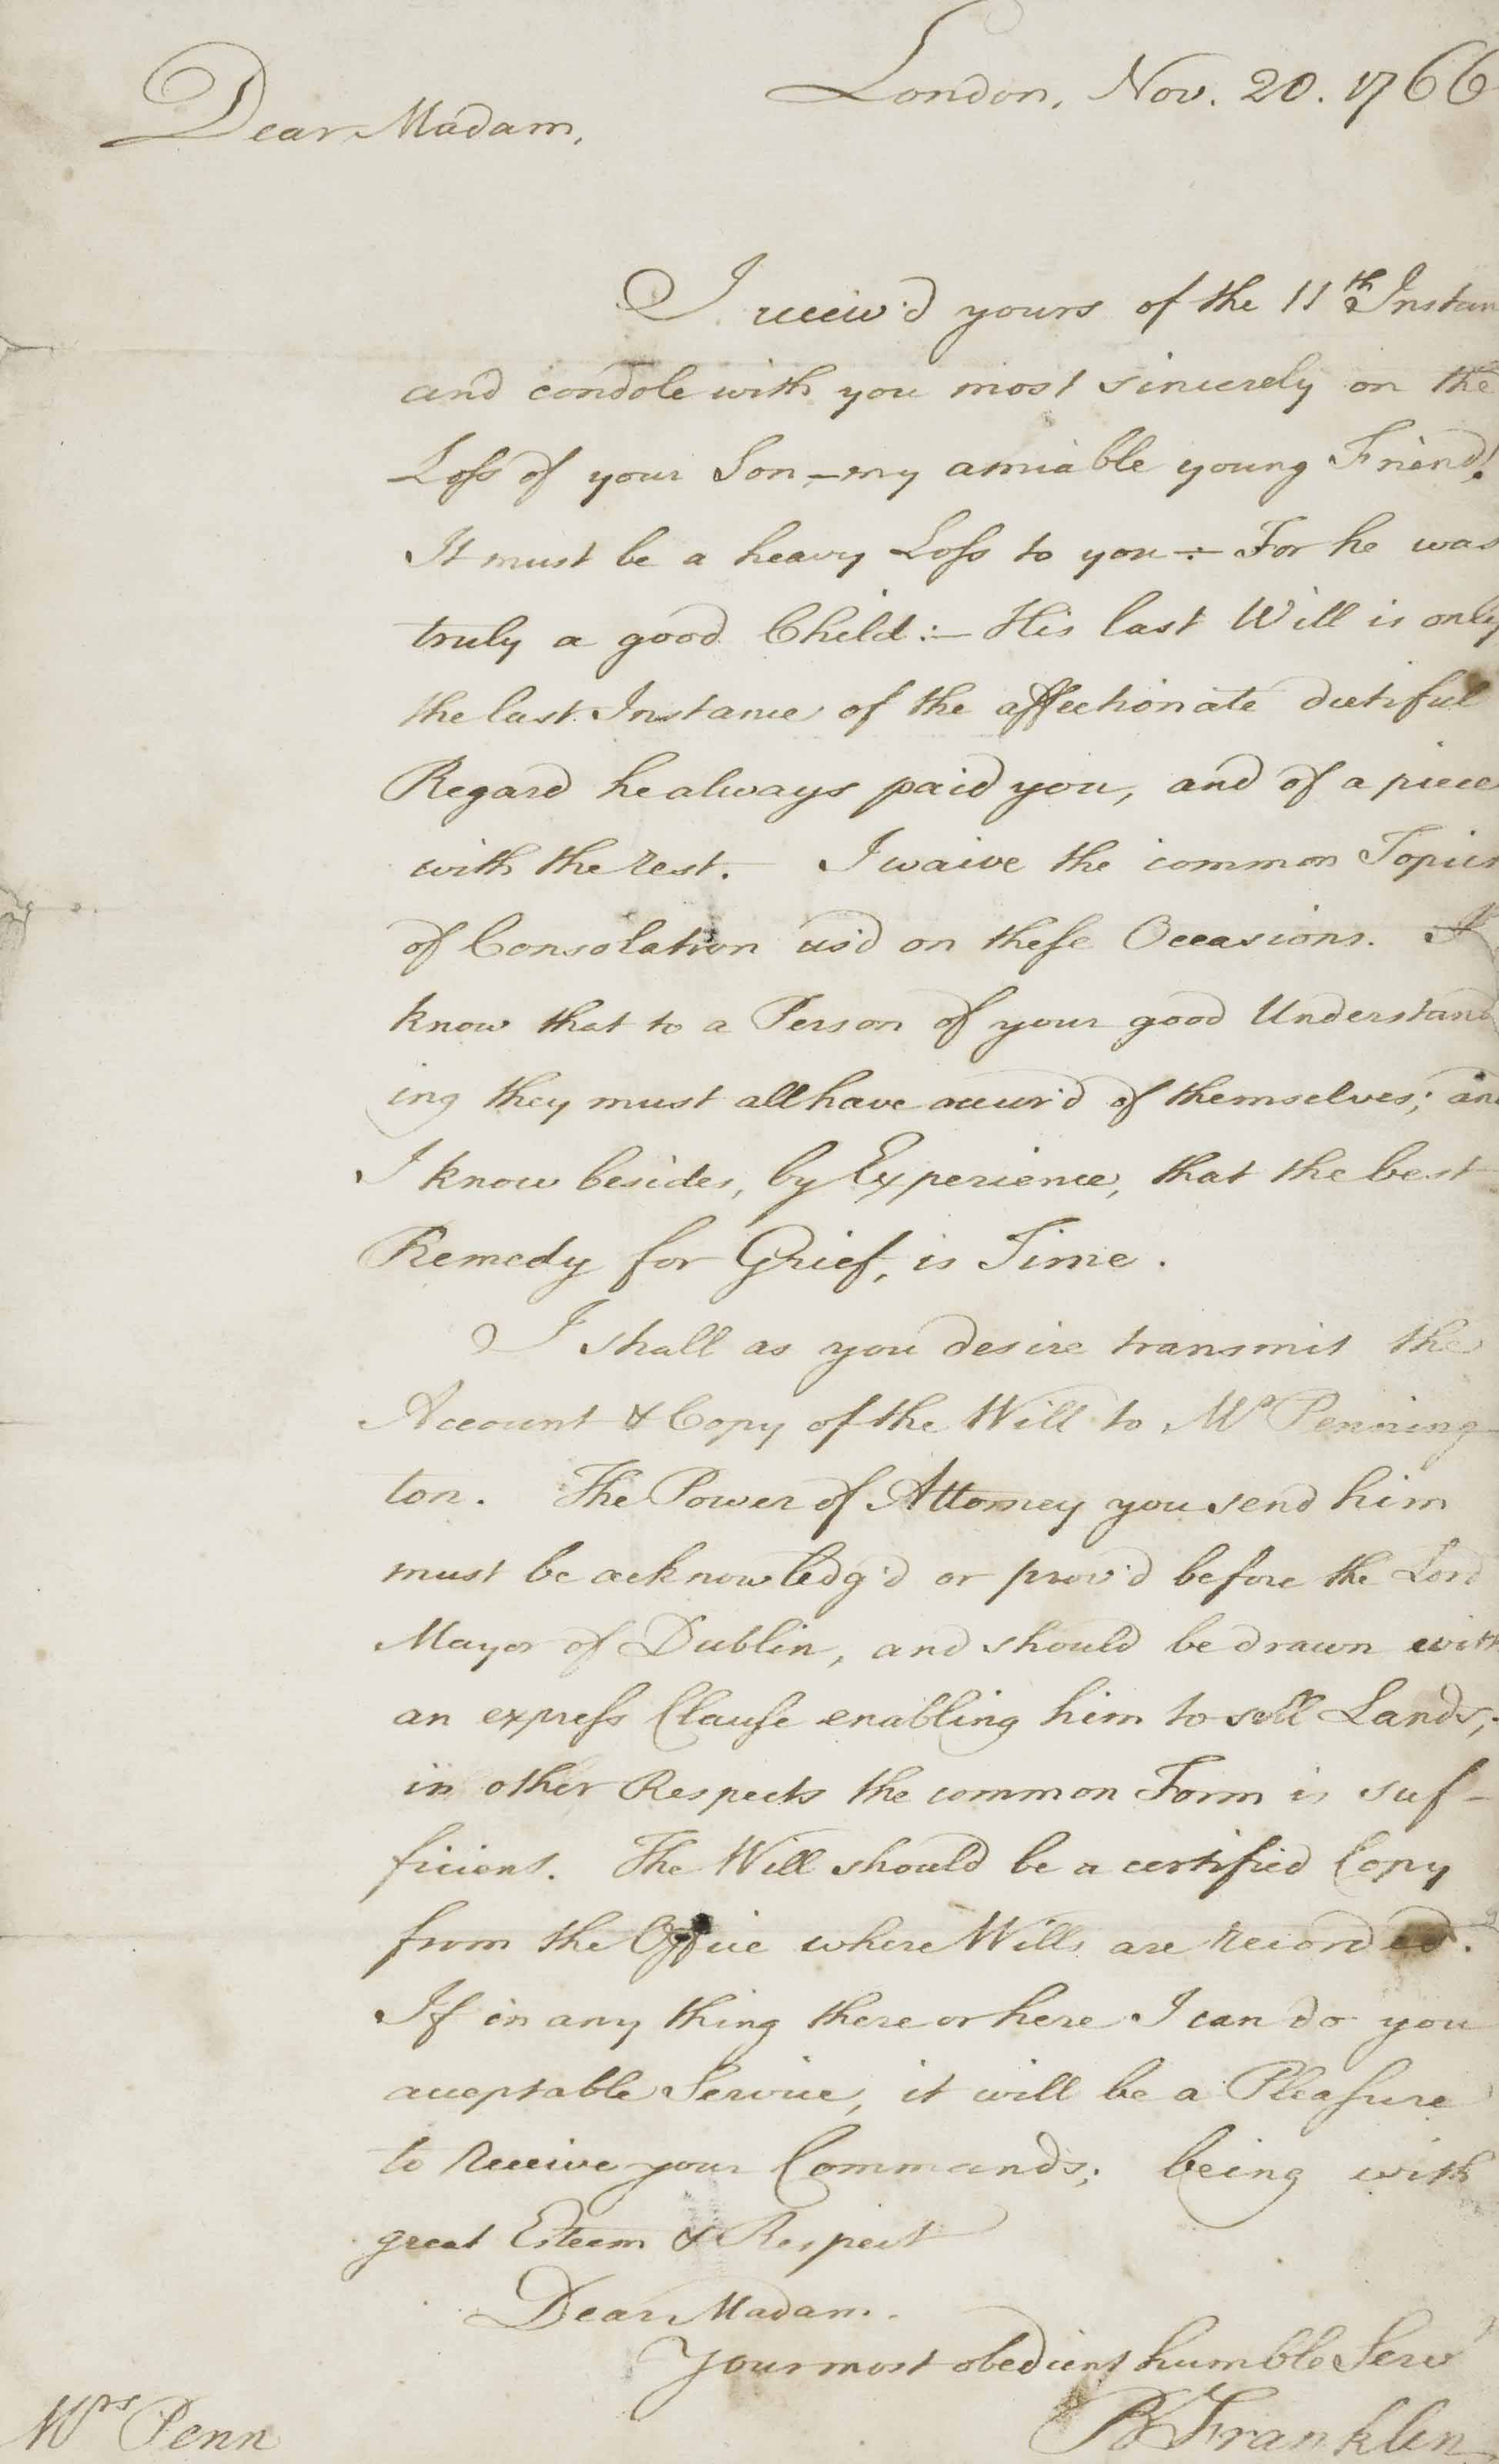 London, Nov. 20. 1766
Dear Madam,
I receiv'd yours of the 11th Instan
and condole with you most sincerely on the
Loss of your Son,—my amiable young Friend!
It must be a heavy Loss to you:— For he was
truly a good Child:— His last Will is only
the last Instance of the affectionate dutiful
Regard he always paid you, and of a piece
with the rest. I waive the common Topics
of Consolation us'd on these Occasions. I
know that to a Person of your good Understand
ing they must all have occur'd of themselves; and
I know besides, by Experience, that the best
Remedy for Grief, is Time.
I shall as you desire transmit the
Account & Copy of the Will to Mr Penning
ton. The Power of Attorney you send him
must be acknowledg'd or prov'd before the Lord
Mayor of Dublin, and should be drawn with
an express Clause enabling him to sell Lands;
in other Respects the common Form is suf-
ficient. The Will should be a certified Copy
from the Office where Wills are recorded.
If in any thing there or here I can do you
acceptable Service, it will be a Pleasure
to receive your Commands; being with
great Esteem & Respect
Dear Madam.
Your most obedient humble Servt
B Franklin
Mrs Penn